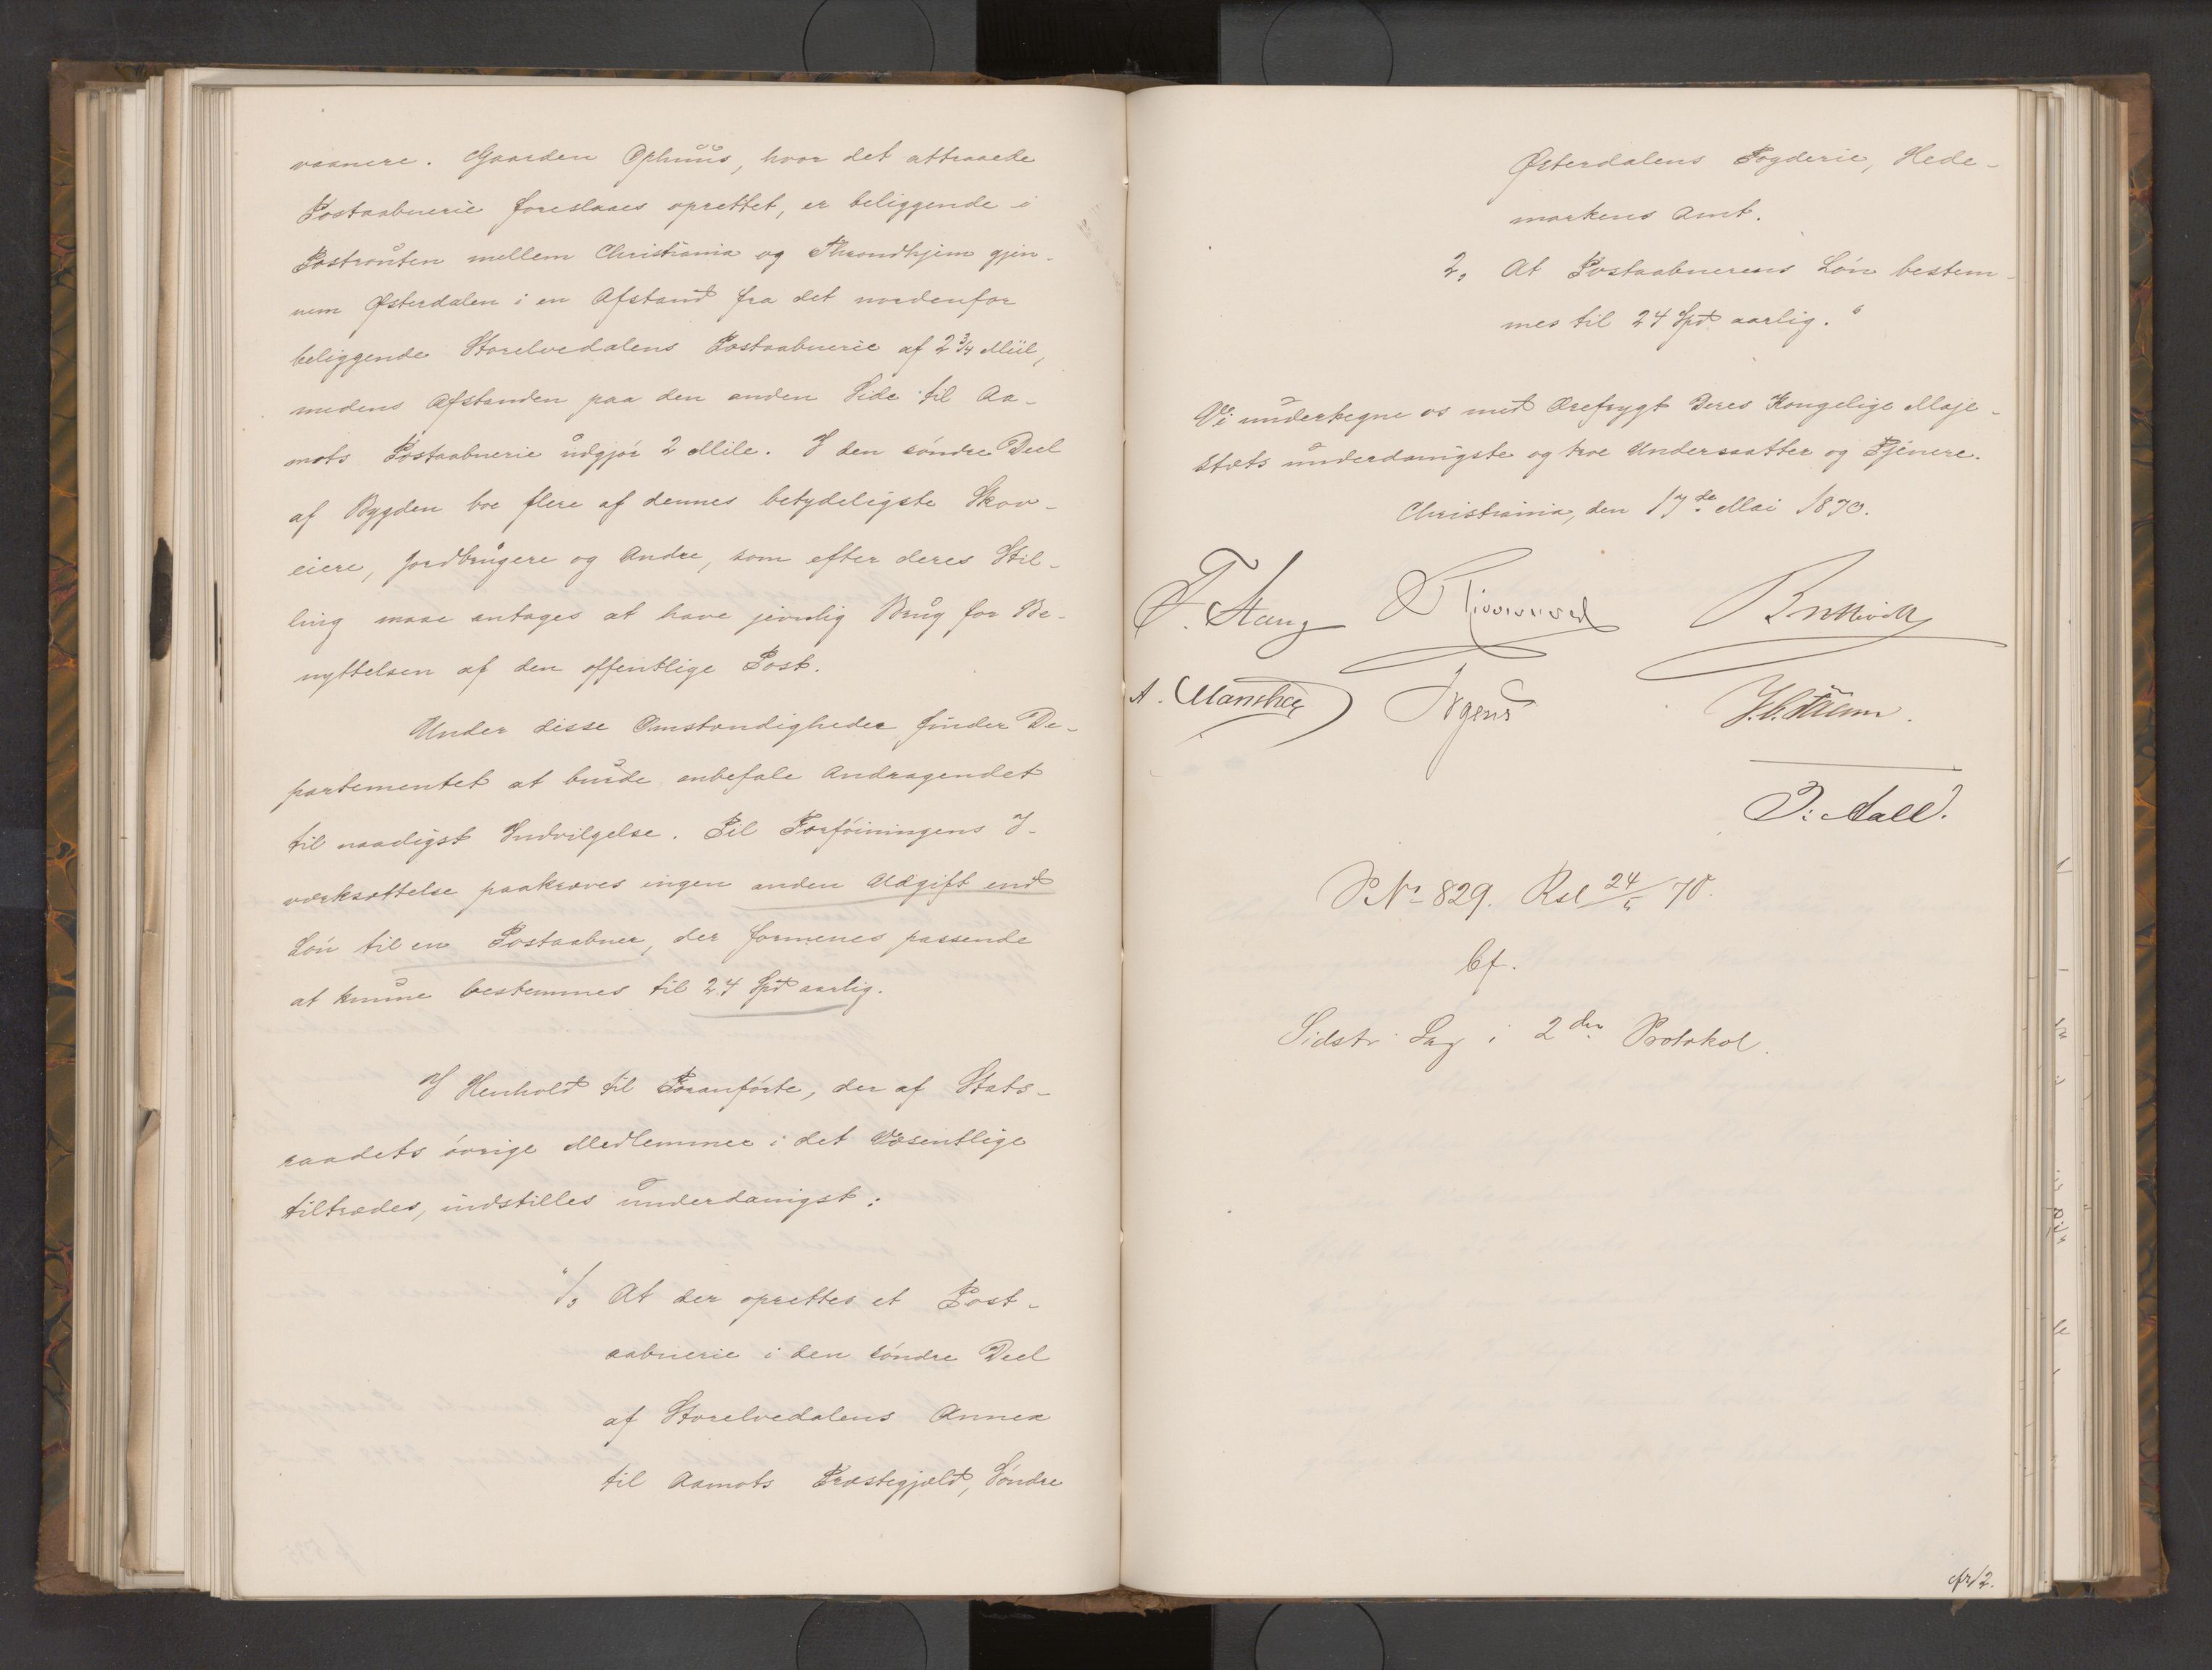 vaanere. Gaarden Ophuus, hvor det attraaede
Postaabnerie foreslaaes oprettet, er beliggende i
Postrouten mellem Christiania og Throndhjem gjen-
nem Østerdalen i en Afstand fra det nordenfor
beliggende Storelvedalens Postaabnerie af 2 3/4 Miil,
medens Afstanden paa den anden Side til Aa-
mots Postaabnerie udgjør 2 Mile. I den søndre Deel
af Bygden boe flere af dennes betydeligste Skov-
eiere, Jordbrugere og Andre, som efter deres Stil-
ling maae antages at have jevnlig Brug for Be-
nyttelsen af den offentlige Post.
Under disse Omstændigheder finder De-
partementet at burde anbefale Andragendet
til naadigst Indvilgelse. Til Forføiningens I-
værksættelse paakræves ingen anden Udgift end
Løn til en Postaabner, der formenes passende
at kunne bestemmes til 24 Spd aarlig.
I Henhold til Foranførte, der af Stats-
raadets øvrige Medlemmer i det Væsentlige
tiltrædes, indstilles underdanigst:
"1, At der oprettes et Post-
aabnerie i den søndre Deel
af Storelvedalens Annex
til Aamots Præstegjæld, Søndre
Østerdalens Fogderie, Hede-
markens Amt.
2, At Postaabnerens Løn bestem-
mes til 24 Spd. aarlig."
Vi undertegne os med Ærefrygt Deres Kongelige Maje-
stæts underdanigste og troe Undersaatter og Tjenere.
Christiania, den 17de Mai 1870.
F. Stang Bretteville
A. Manthey Irgens
J. Aall.
P No 829. Rsl 24/5 70.
bf.
Sidste Sag i 2den Protokol.